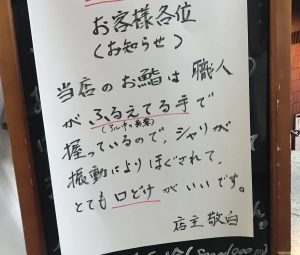 お客様各位
(お知らせ)
当店のお鮨は 職人
が ふるえてる手で
握っているので、シャリが
振動によりほぐされて、
とても 口どけ がいいです。
店主 敬白